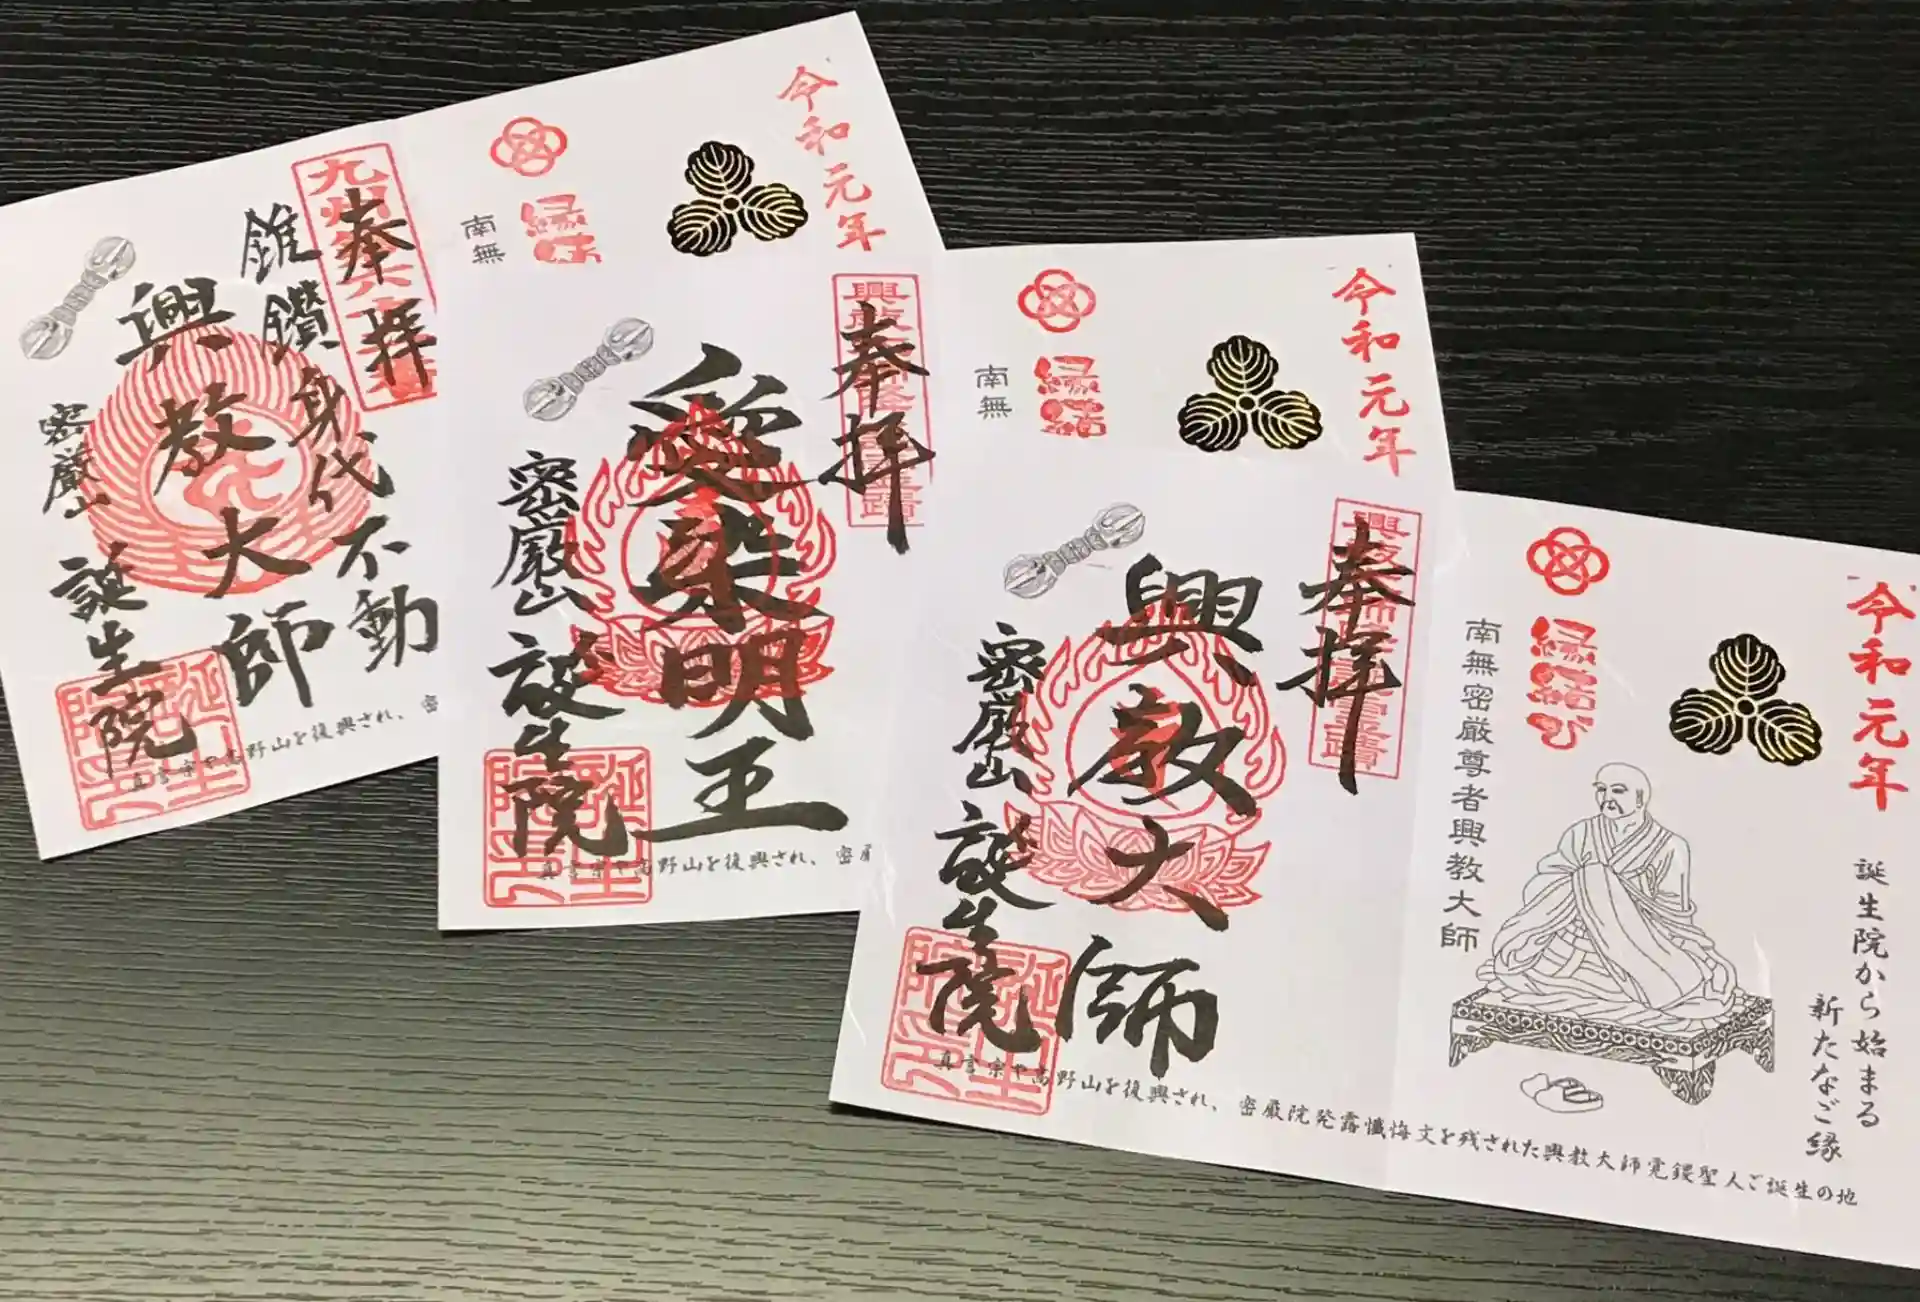 令和元年
縁結
南無
奉拝
九州
錐鑽身代不動
興教大師
密厳山
誕生院
真言宗や高野山を復興され、密
令和元年
縁結
南無
奉拝
愛染明王
密厳山
誕生院
真言宗や高野山を復興され、密厳
令和元年
縁結び
南無密厳尊者興教大師
誕生院から始まる
新たなご縁
奉拝
興教大師
密厳山
誕生院
真言宗や高野山を復興され、密厳院発露懺悔文を残された興教大師覚鑁聖人ご誕生の地